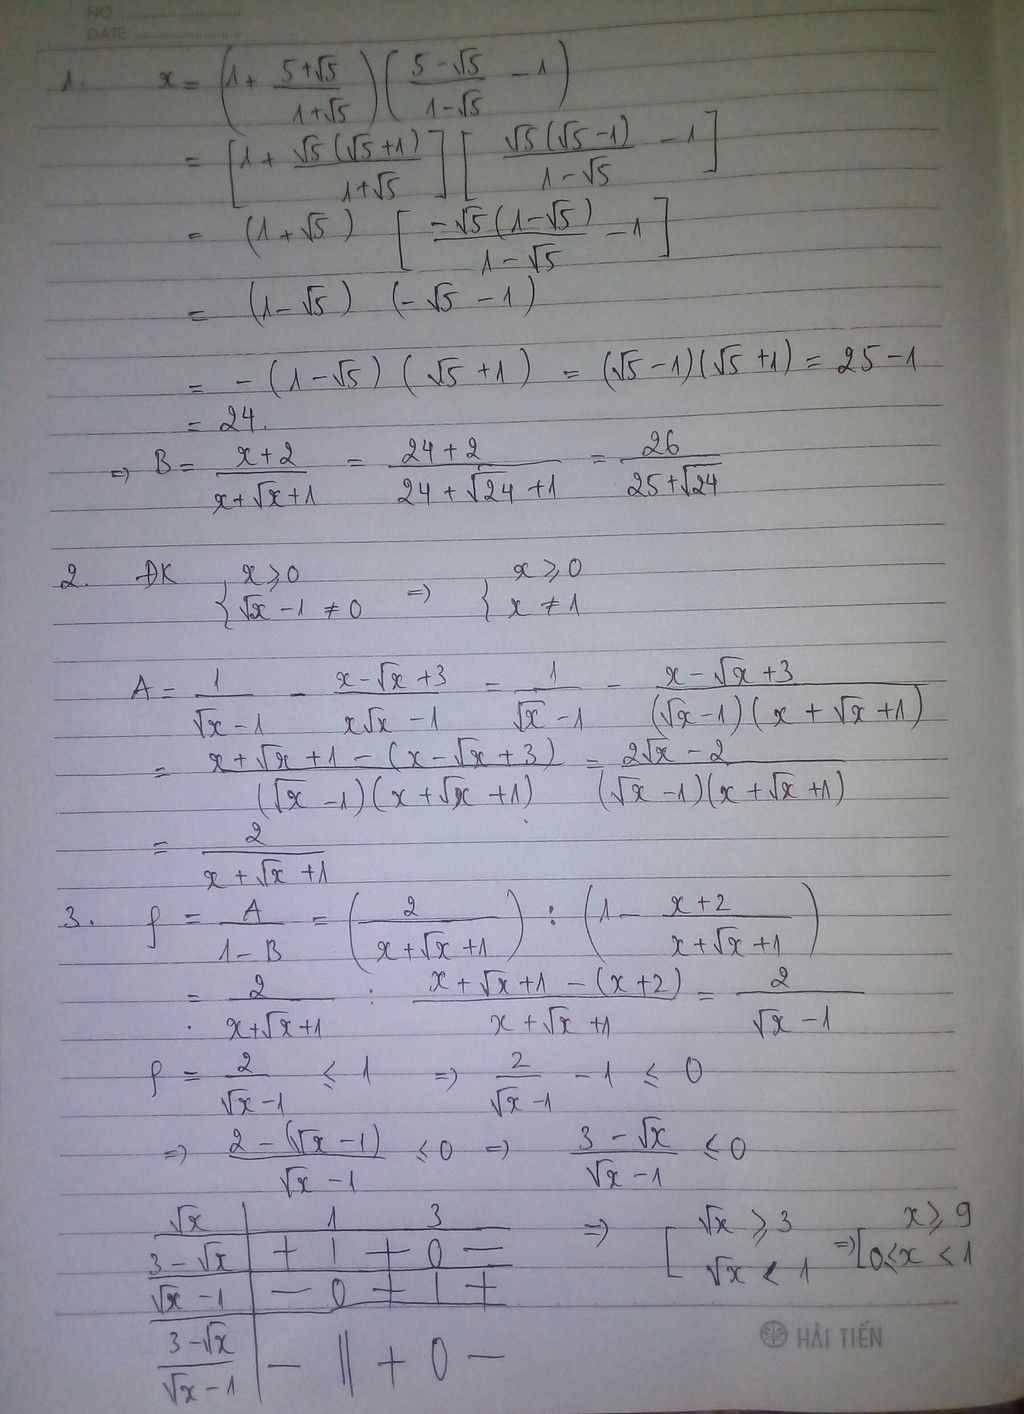 NO.
DATE
1. x = (1 + (5+√5)/(1+√5)) ((5-√5)/(1-√5) - 1)
= [1 + √5(√5+1)/(1+√5)] [√5(√5-1)/(1-√5) - 1]
= (1+√5) [-√5(1-√5)/(1-√5) - 1]
= (1-√5) (-√5 - 1)
= -(1-√5)(√5+1) = (√5-1)(√5+1) = 25-1
= 24.
=> B = (x+2)/(x+√x+1) = (24+2)/(24+√24+1) = 26/(25+√24)
2. ĐK { x ≥ 0 √x - 1 ≠ 0 => { x ≥ 0 x ≠ 1
A = 1/(√x-1) - (x-√x+3)/(x√x-1) = 1/(√x-1) - (x-√x+3)/((√x-1)(x+√x+1))
= (x+√x+1-(x-√x+3))/((√x-1)(x+√x+1)) = (2√x-2)/((√x-1)(x+√x+1))
= 2/(x+√x+1)
3. P = A/(1-B) = (2/(x+√x+1)) : (1 - (x+2)/(x+√x+1))
= 2/(x+√x+1) : (x+√x+1-(x+2))/(x+√x+1) = 2/(√x-1)
P = 2/(√x-1) ≤ 1 => 2/(√x-1) - 1 ≤ 0
=> (2-(√x-1))/(√x-1) ≤ 0 => (3-√x)/(√x-1) ≤ 0
√x | 1 3
3-√x | + | + 0 -
√x-1 | - 0 + | +
(3-√x)/(√x-1) | - || + 0 -
=> [ √x ≥ 3 √x < 1 => [ x ≥ 9 0 ≤ x < 1
HẢI TIẾN